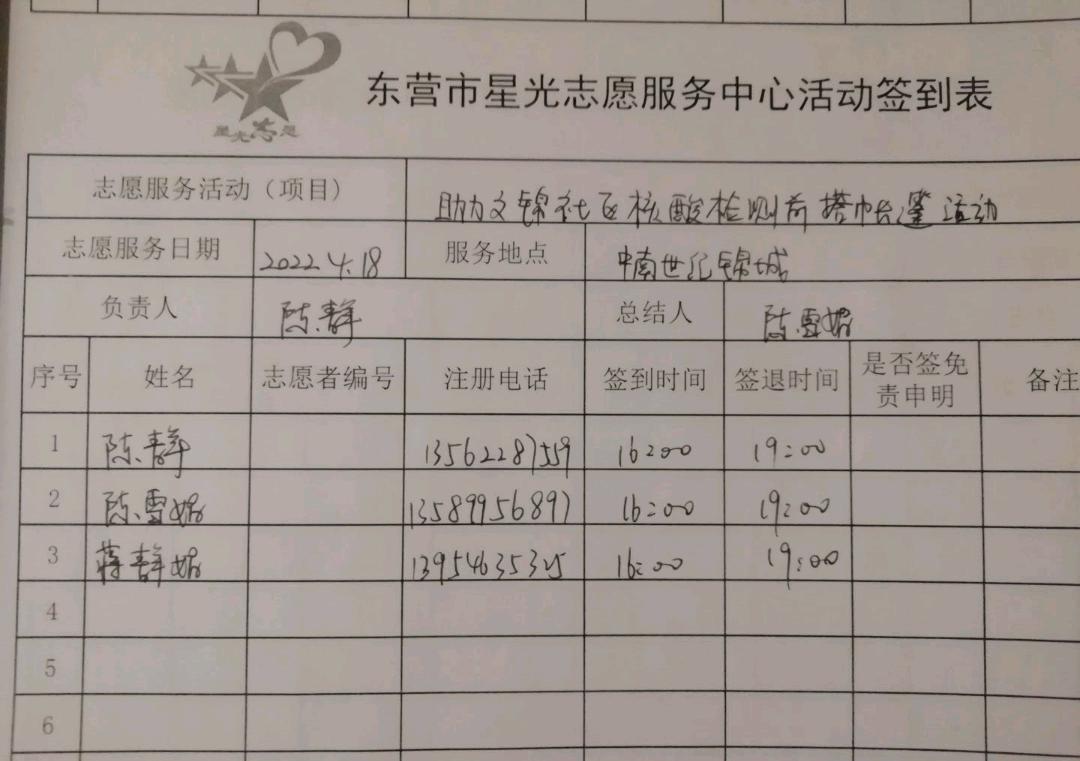 星光志愿
东营市星光志愿服务中心活动签到表
志愿服务活动（项目） 助力文锦社区核酸检测前搭帐篷活动
志愿服务日期 2022.4.18 服务地点 中南世纪锦城
负责人 陈静 总结人 陈雪娟
序号 姓名 志愿者编号 注册电话 签到时间 签退时间 是否签免责申明 备注
1 陈静 13562287559 16:00 19:00
2 陈雪娟 13589956897 16:00 19:00
3 蒋静娟 13954635325 16:00 19:00
4
5
6